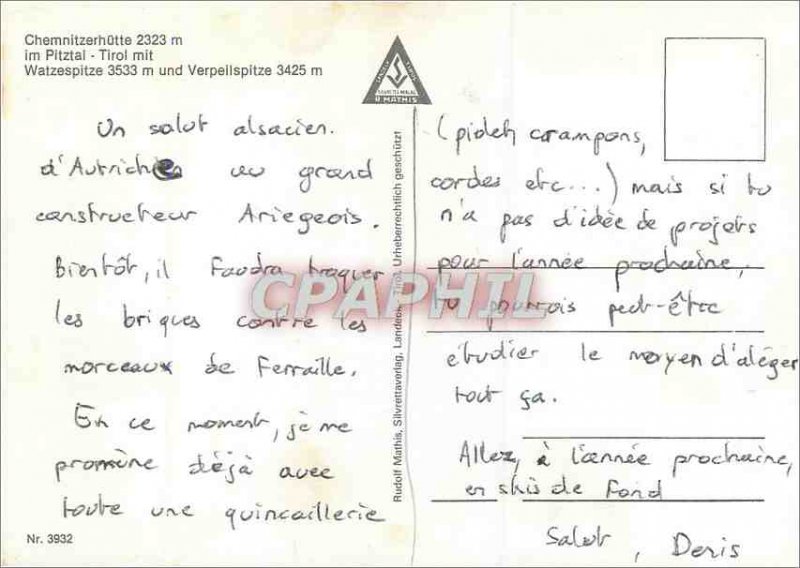 Chemnitzerhütte 2323 m
im Pitztal - Tirol mit
Watzespitze 3533 m und Verpeilspitze 3425 m
R MATHIS
Un salut alsacien.
d'Autriche au grand
constructeur Ariegeois.
Bientôt, il faudra troquer
les briques contre les
morceaux de Ferraille.
En ce moment, je me
promène déjà avec
toute une quincaillerie
Nr. 3932
Rudolf Mathis, Silvrettaverlag, Landeck, Tirol. Urheberrechtlich geschützt
(piolet, crampons,
cordes etc...) mais si tu
n'a pas d'idée de projets
pour l'année prochaine,
tu pourrois peut-être
étudier le moyen d'aléger
tout ça.
Allez, à l'année prochaine,
en skis de Fond
Salut, Denis
CPAPHIL